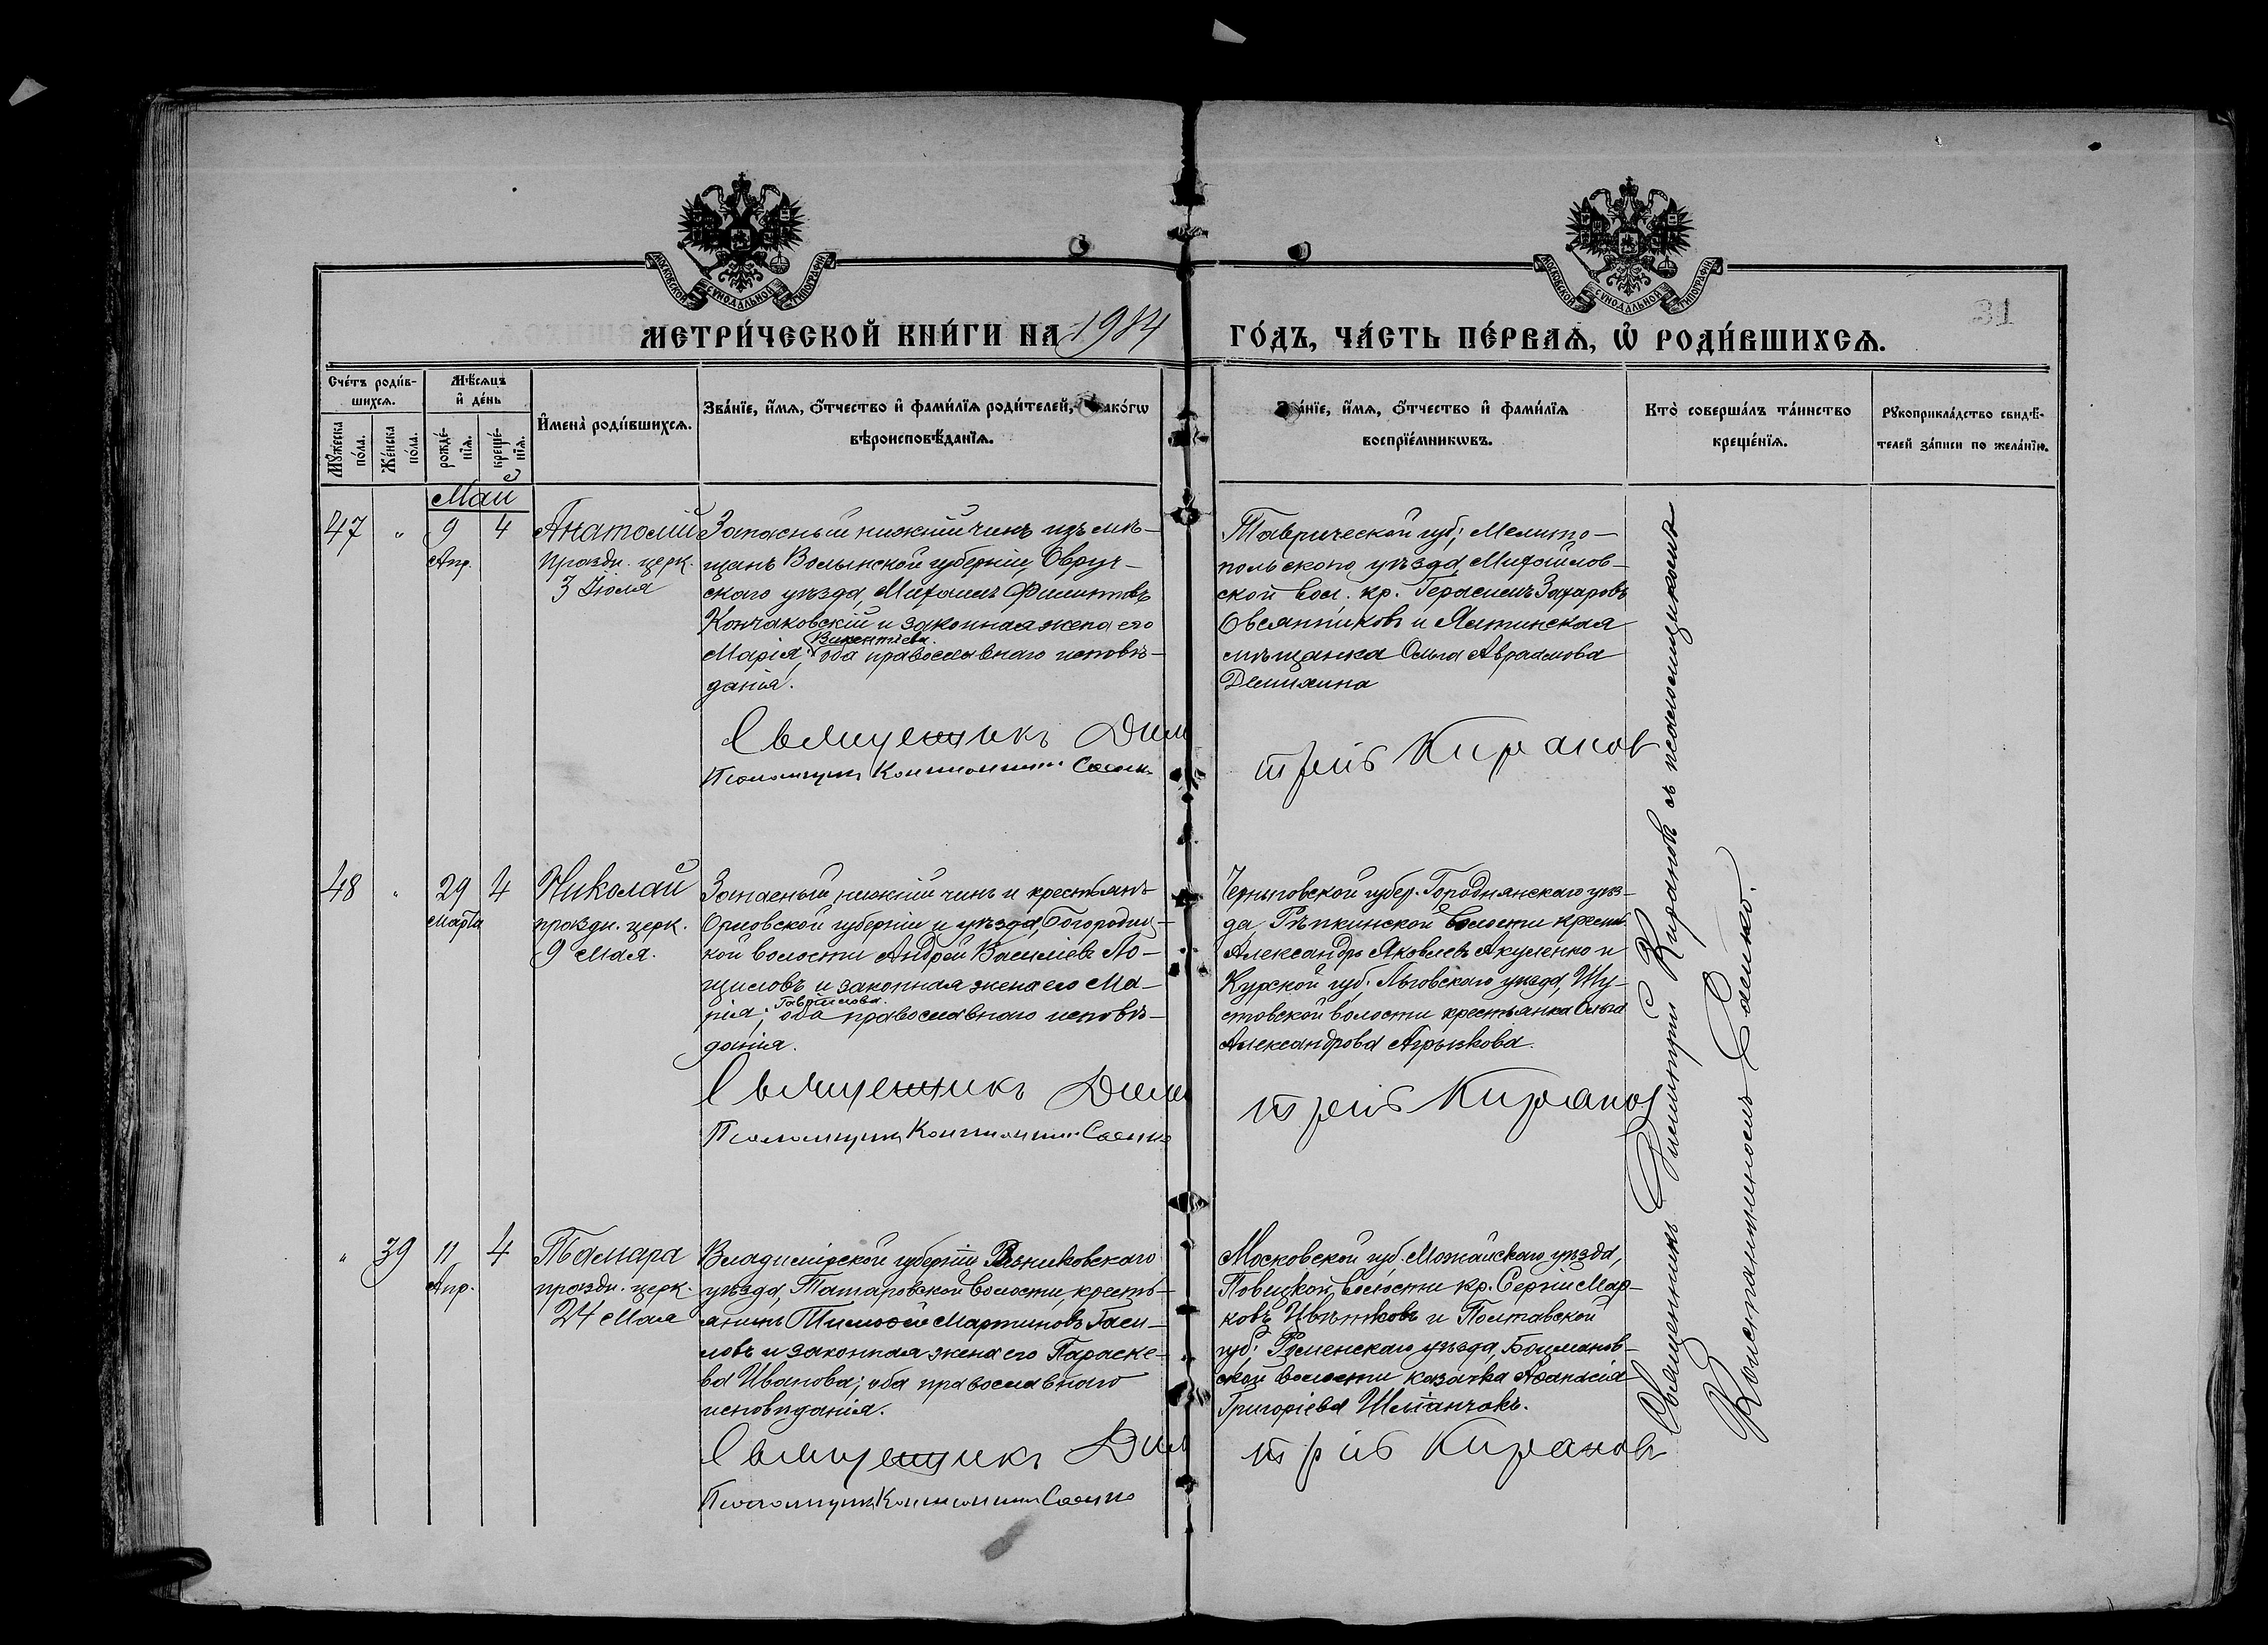 МОСКОВСКОЙ СѴНОДАЛЬНОЙ ТИПОГРАФІИ
МОСКОВСКОЙ СѴНОДАЛЬНОЙ ТИПОГРАФІИ
31
МЕТРИ́ЧЕСКОЙ КНИ́ГИ НА 1914
ГО́ДЪ, ЧА́СТЬ ПЕ́РВАѦ, Ѡ҆ РОДИ́ВШИХСѦ.
Сче́тъ роди́в-
шихсѧ.
Мꙋ́жеска по́ла.
Же́нска по́ла.
Мѣ́сѧцъ
и҆ де́нь
рожде́-
нїѧ.
креще́-
нїѧ.
И҆мена̀ роди́вшихсѧ.
Зва́нїе, и҆́мѧ, ѻ҆́тчество и҆ фами́лїѧ роди́телей, како́гѡ
вѣроисповѣ́данїѧ.
Зва́нїе, и҆́мѧ, ѻ҆́тчество и҆ фами́лїѧ
воспрїе́мникѡвъ.
Кто̀ соверша́лъ та́инство
креще́нїѧ.
Рꙋкоприкла́дство свидѣ́-
телей за́писи по жела́нїю.
Май
47 " 9 4
Апр.
Анатолій
Праздн. церк.
3 Іюля
Запасный нижній чинъ изъ мѣ-
щанъ Волынской губерніи, Овруч-
скаго уѣзда, Михаилъ Филиповъ
Кончаковскій и законная жена его
Викентіева
Марія, оба православнаго исповѣ-
данія.
Священникъ Дим
Псаломщикъ Константинъ Саенко
Таврической губ; Мелито-
польскаго уѣзда, Михайлов-
ской вол. кр. Герасимъ Захаровъ
Овсянниковъ и Ялтинская
мѣщанка Ольга Авраамова
итрій Кирановъ
48 " 29 4
Марта
Николай
праздн. церк.
9 Мая.
Запасный нижній чинъ и крестьянъ
Орловской губерніи и уѣзда, Богородиц-
кой волости Андрей Васильевъ Ло-
щиловъ и законная жена его Ма-
рія, оба православнаго исповѣ-
данія.
Священникъ Дим
Псаломщикъ Константинъ Саенко
Черниговской губер. Городнянскаго уѣз-
да, Рѣпкинской волости крест.
Александръ Яковлевъ Акуленко и
Курской губ. Льговскаго уѣзда, Шу-
стовской волости крестьянка Ольга
Александрова Агрызкова.
итрій Кирановъ
" 39 11 4
Апр.
Тамара
праздн. церк.
24 Мая
Владимірской губерніи Вязниковскаго
уѣзда, Татаровской волости, кресть-
янинъ Тимофей Мартиновъ Гаси-
ловъ и законная жена его Параске-
ва Иванова; оба православнаго
исповѣданія.
Священникъ Дим
Псаломщикъ Константинъ Саенко
Московской губ. Можайскаго уѣзда,
волости кр. Сергій Мар-
ковъ Цвѣтковъ и Полтавской
губ. Роменскаго уѣзда, Боцманов-
ской волости казачка Афанасія
Григоріева
итрій Кирановъ
Священникъ Димитрій Кирановъ съ псаломщикомъ
Константиномъ Саенко.